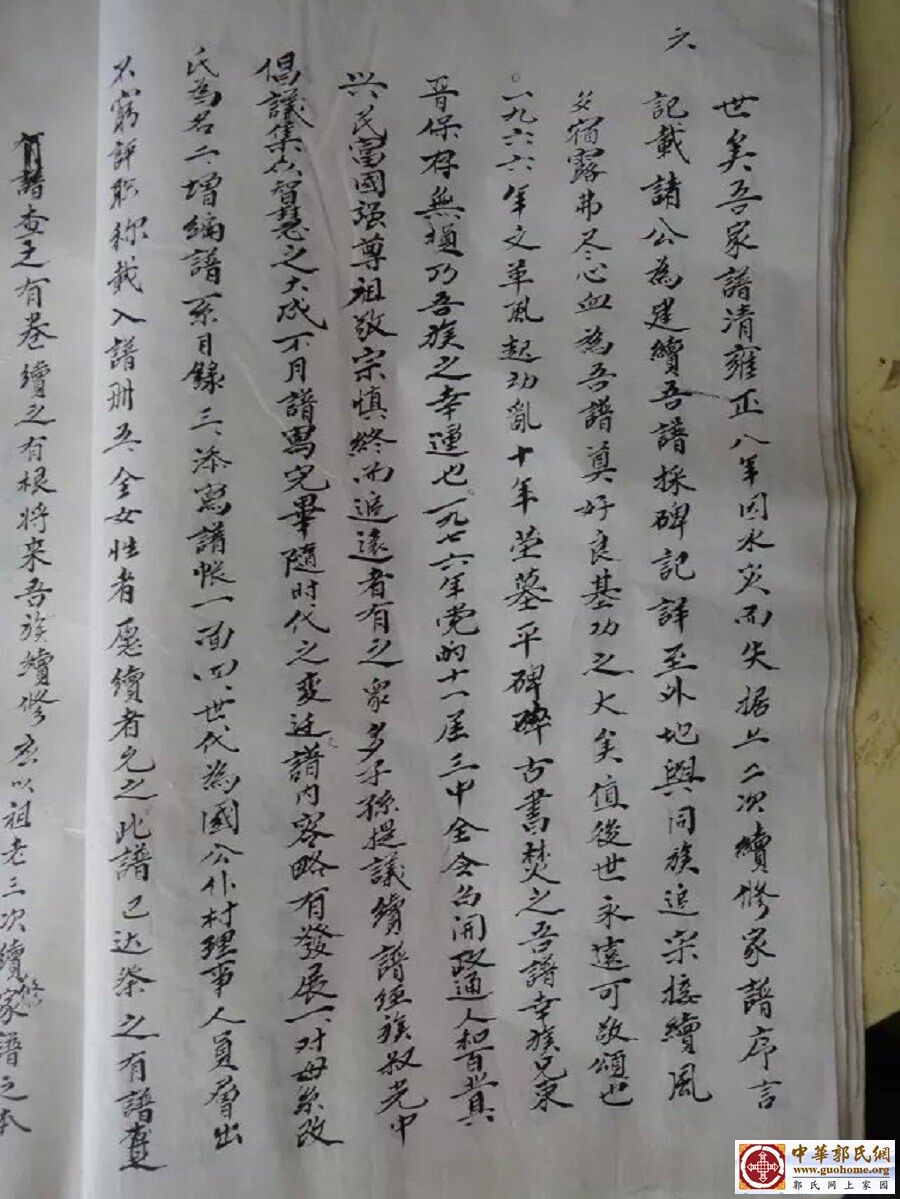 六
世矣吾家譜清雍正八年因水災而失据上二次續修家譜序言
記載請公為建續吾譜採碑記詳至外地與同族追宗接續風
餐宿露弗尽心血為吾譜奠好良基功之大矣值後世永遠可敬頌也
一九六六年文革風起功亂十年茔墓平碑碎古書焚之吾譜幸族兄東
晋保存無損乃吾族之幸運也一九七六年党的十一届三中全会召開政通人和百業具
兴民富國强尊祖敬宗慎終而追遠者有之眾多子孫提議續譜經族叔光中
倡議集众智慧之大成不月譜寫完畢隨时代之变迁譜内容略有發展一对母系改
氏為名二增編譜系目錄三添寫譜帐一面四世代為國公仆村理事人員層出
不窮評职称载入譜册五全女性者愿續者允之此譜已达祭之有譜查
有譜查之有卷續之有根將来吾族續修应以祖老三次續修家譜之本
中華郭氏網
www.guohome.org
郭氏网上家园